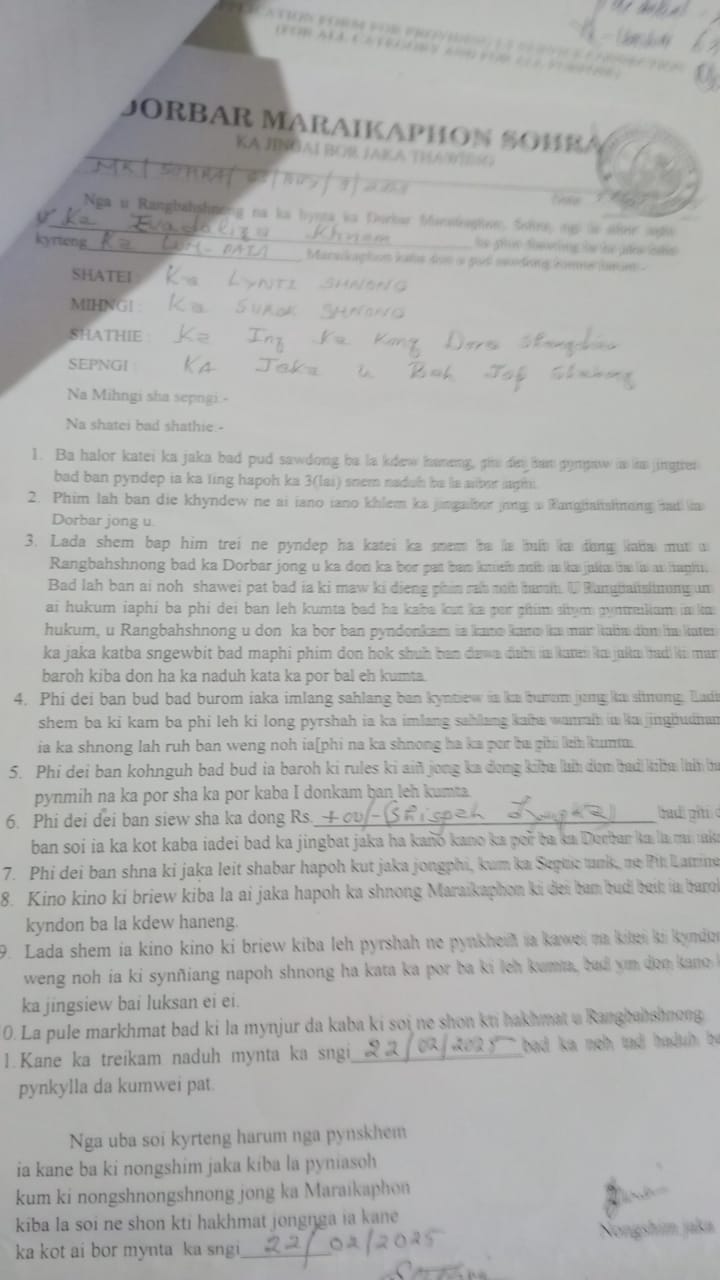 APPLICATION FORM FOR PROVIDING LT SERVICE CONNECTION
(FOR ALL CATEGORY AND FOR ALL PURPOSE)
DORBAR MARAIKAPHON SOHRA
KA JINGAI BOR JAKA THAWIENG
MK/ SOHRA/
Nga u Rangbahshnong na ka bynta ka Dorbar Maraikaphon, Sohra, nga la
Ka Evadaliza Khnam
kyrteng Ka Maraikaphon kaba don u pud sawdong kumne harum:-
SHATEI : Ka LYNTI SHNONG
MIHNGI : Ka SUROK SHNONG
SHATHIE : Ka Ing ka Kong Dora
SEPNGI : KA Jaka u Bah
Na Mihngi sha sepngi:-
Na shatei bad shathie:-
1. Ba halor katei ka jaka bad pud sawdong ba la kdew haneng, phi dei ban pynpaw ia ka jingtrei
bad ban pyndep ia ka Iing hapoh ka 3(lai) snem naduh ba la aibor iaphi.
2. Phim lah ban die khyndew ne ai iano iano khlem ka jingaibor jong u Rangbahshnong bad ka
Dorbar jong u.
3. Lada shem bap him trei ne pyndep ha katei ka snem ba la buh ka dong kata mut u
Rangbahshnong bad ka Dorbar jong u ka don ka bor pat ban knieh noh ia ka jaka ba la ai haphi.
Bad lah ban ai noh shawei pat bad ia ki maw ki dieng phin rah noh baroh. U Rangbahshnong un
ai hukum iaphi ba phi dei ban leh kumta bad ha kaba kut ka por phim shym pyntreikam ia ka
hukum, u Rangbahshnong u don ka bor ban pyndonkam ia kano kano ka mar kaba don ha katei
ka jaka katba sngewbit bad maphi phim don hok shuh ban dawa dabi ia katei ka jaka bad ki mar
baroh kiba don ha ka naduh kata ka por bal eh kumta.
4. Phi dei ban bud bad burom iaka imlang sahlang ban kyntiew ia ka burom jong ka shnong. Lada
shem ba ki kam ba phi leh ki long pyrshah ia ka imlang sahlang kaba wanrah ia ka
ia ka shnong lah ruh ban weng noh ia[phi na ka shnong ha ka por ba phi leh kumta.
5. Phi dei ban kohnguh bad bud ia baroh ki rules ki aiñ jong ka dong kiba lah don bad kiba lah
pynmih na ka por sha ka por kaba I donkam ban leh kumta.
6. Phi dei dei ban siew sha ka dong Rs. +00/-(Shispah Tyngka) bad phi
ban soi ia ka kot kaba iadei bad ka jingbat jaka ha kano kano ka por ba ka Dorbar ka la
7. Phi dei ban shna ki jaka leit shabar hapoh kut jaka jongphi, kum ka Septic tank, ne Pit Latrine
8. Kino kino ki briew kiba la ai jaka hapoh ka shnong Maraikaphon ki dei ban bud beit ia baroh
kyndon ba la kdew haneng.
9. Lada shem ia kino kino ki briew kiba leh pyrshah ne pynkheiñ ia kawei na kitei ki kyndon
weng noh ia ki synñiang napoh shnong ha kata ka por ba ki leh kumta, bad ym don kano
ka jingsiew bai luksan ei ei.
0. La pule markhmat bad ki la mynjur da kaba ki soi ne shon kti hakhmat u Rangbahshnong.
1. Kane ka treikam naduh mynta ka sngi 22/02/2025 bad ka neh tad haduh
pynkylla da kumwei pat.
Nga uba soi kyrteng harum nga pynskhem
ia kane ba ki nongshim jaka kiba la pyniasoh
kum ki nongshnongshnong jong ka Maraikaphon
kiba la soi ne shon kti hakhmat jongnga ia kane
ka kot ai bor mynta ka sngi 22/02/2025
Nongshim jaka